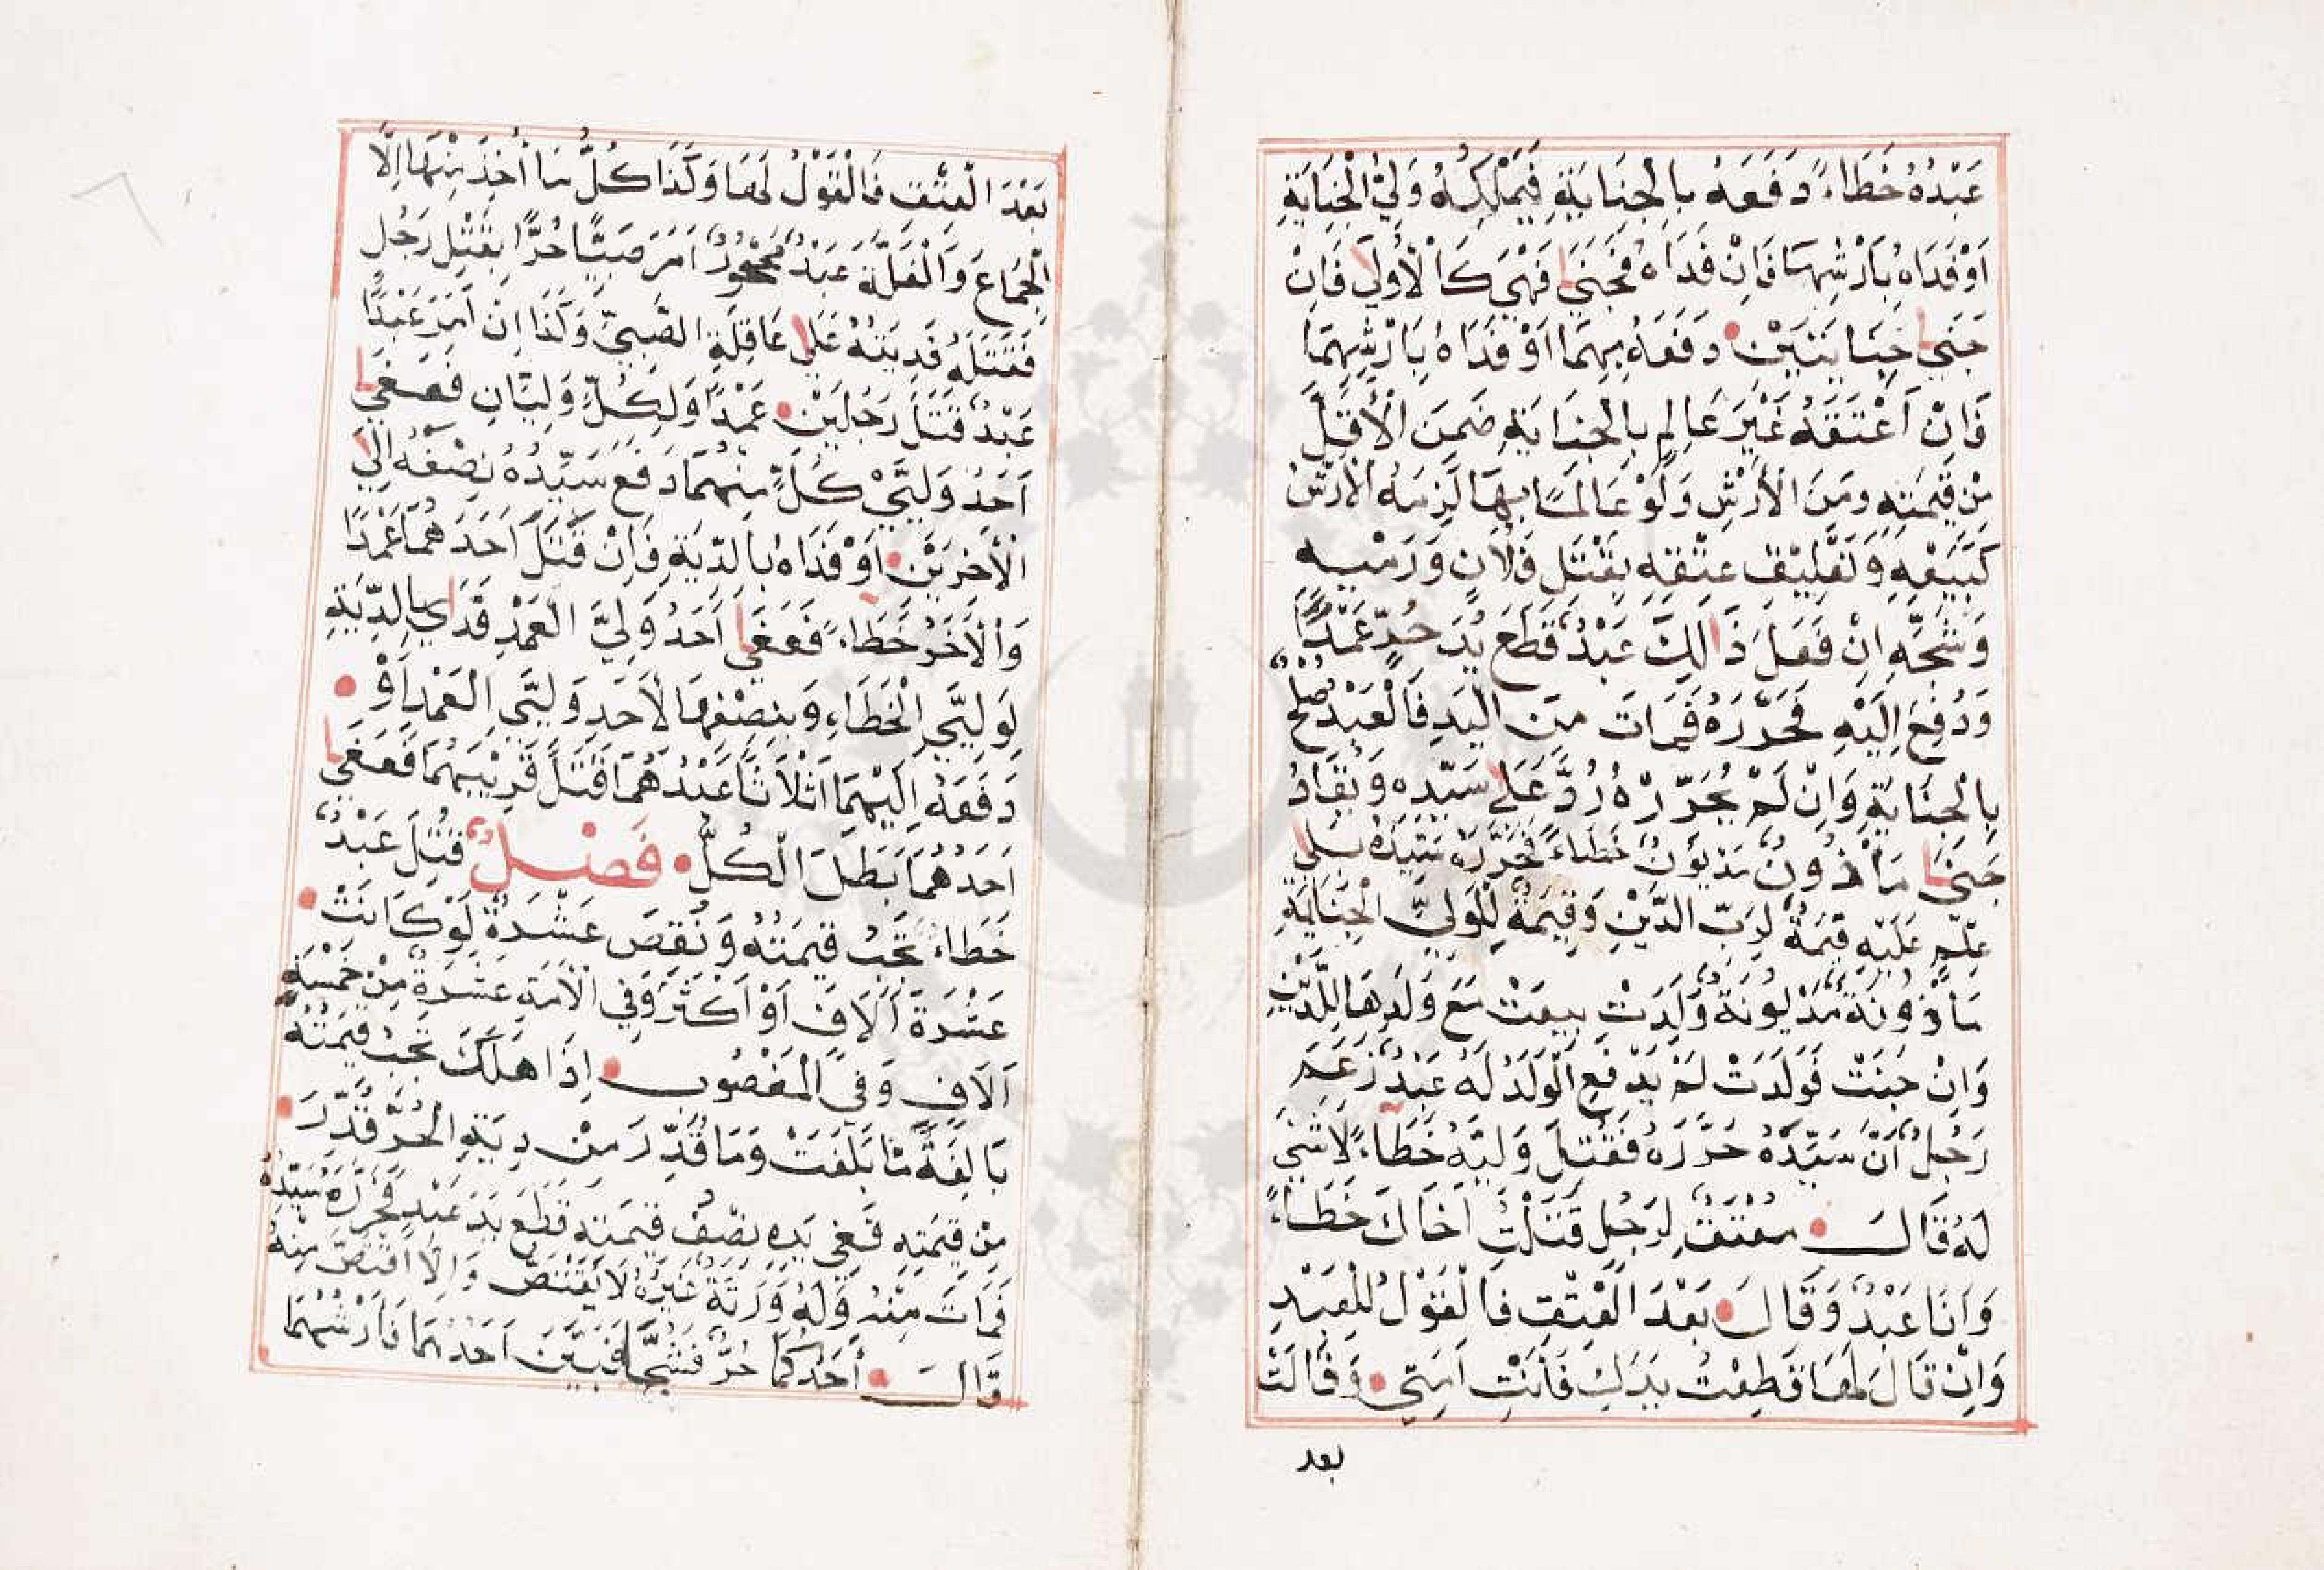 عَبْدُهُ خَطَاءً دَفَعَهُ بِالْجِنَايَةِ فَيَمْلِكُهُ وَلِيُّ الْجِنَايَةِ
اَوْ فَدَاهُ بِاَرْشِهَا فَاِنْ فَدَاهُ فَجَنَي فَهِيَ كَالْأُولَي فَاِنْ
جَنَي جِنَايَتَيْنِ دَفَعَهُ بِهِمَا اَوْ فَدَاهُ بِاَرْشِهِمَا
فَاِنْ اَعْتَقَهُ غَيْرَ عَالِمٍ بِالْجِنَايَةِ ضَمِنَ الْأَقَلَّ
مِنْ قِيمَتِهِ وَمِنَ الْأَرْشِ وَلَوْ عَالِمًا بِهَا لَزِمَهُ الْأَرْشُ
كَبَيْعِهِ وَتَعْلِيْقِ عِتْقِهِ بِقَتْلِ فُلَانٍ وَرَمْيِهِ
وَشَجِّهِ اِنْ فَعَلَ ذَالِكَ عَبْدٌ قَطَعَ يَدَ حُرٍّ عَمْدًا
وَدُفِعَ اِلَيْهِ فَحَرَّرَهُ فَمَاتَ مِنَ الْيَدِ فَالْعَبْدُ صُلْحٌ
بِالْجِنَايَةِ وَاِنْ لَمْ يُحَرِّرْهُ رُدَّ عَلَي سَيِّدِهِ وَيُقَادُ
جَنَي مَأْذُونٌ مَدْيُونٌ خَطَاءً فَحَرَّرَهُ سَيِّدُهُ بِلَا
عِلْمٍ عَلَيْهِ قِيمَةٌ لِرَبِّ الدَّيْنِ وَقِيمَةٌ لِلْوَلِيِّ الْجِنَايَةِ
مَأْذُونَةٌ مَدْيُونَةٌ وَلَدَتْ بِيعَتْ مَعَ وَلَدِهَا لِلدَّيْنِ
وَاِنْ جَنَتْ فَوَلَدَتْ لَمْ يَدْفَعِ الْوَلَدُ لَهُ عَبْدٌ زَعَمَ
رَجُلٌ اَنَّ سَيِّدَهُ حَرَّرَهُ فَقَتَلَ وَلِيَّهُ خَطَاءً لَا شَيْءَ
لَهُ قَالَ مُعْتَقٌ لِرَجُلٍ قَتَلْتُ اَخَاكَ خَطَاءً
وَاَنَا عَبْدٌ وَقَالَ بَعْدَ الْعِتْقِ فَالْقَوْلُ لِلْعَبْدِ
وَاِنْ قَالَ لَهَا قَطَعْتُ يَدَكِ فَأَنْتِ اَمَتِي وَقَالَتْ
بعد
بَعْدَ الْعِتْقِ فَالْقَوْلُ لَهَا وَكَذَا كُلُّ مَا أُخِذَ مِنْهَا اِلَّا
الْجِمَاعَ وَالْغَلَّةَ عَبْدٌ مَحْجُورٌ اَمَرَ صَبِيًّا حُرًّا بِقَتْلِ رَجُلٍ
فَقَتَلَهُ فَدِيَتُهُ عَلَي عَاقِلَةِ الصَّبِيِّ وَكَذَا اِنْ اَمَرَ عَبْدًا
عَبْدٌ قَتَلَ رَجُلَيْنِ عَمْدًا وَلِكُلٍّ وَلِيَّانِ فَعَفَي
اَحَدُ وَلِيَّيْ كُلٍّ مِنْهُمَا دَفَعَ سَيِّدُهُ نِصْفَهُ اِلَي
الْأَخَرَيْنِ اَوْ فَدَاهُ بِالدِّيَةِ فَاِنْ قَتَلَ اَحَدَهُمَا عَمْدًا
وَالْأَخَرَ خَطَاءً فَعَفَي اَحَدُ وَلِيَّ الْعَمْدِ فَدَاي بِالدِّيَةِ
لِوَلِيَّيِ الْخَطَاءِ وَبِنِصْفِهَا لِأَحَدِ وَلِيَّيِ الْعَمْدِ اَوْ
دَفَعَهُ اِلَيْهِمَا اَثْلَاثًا عَبْدُهُمَا قَتَلَ قَرِيْبَهُمَا فَعَفَي
اَحَدُهُمَا بَطَلَ الْكُلُّ فَصْلٌ قُتِلَ عَبْدٌ
خَطَاءً تَجِبُ قِيمَتُهُ وَنُقِصَ عَشْرَةٌ لَوْ كَانَتْ
عَشْرَةَ اَلَافٍ اَوْ اَكْثَرَ وَفِي الْأَمَةِ عَشَرَةٌ مِنْ خَمْسَةِ
اَلَافٍ وَفِي الْمَغْصُوبِ اِذَا هَلَكَ تَجِبُ قِيمَتُهُ
بَالِغَةً مَا بَلَغَتْ وَمَا قُدِّرَ مِنْ دِيَةِ الْحُرِّ قُدِّرَ
مِنْ قِيمَتِهِ فَفِي يَدِهِ نِصْفُ قِيمَتِهِ قَطَعَ يَدَ عَبْدٍ فَحَرَّرَهُ سَيِّدُهُ
فَمَاتَ مِنْهُ وَلَهُ وَرَثَةٌ غَيْرُهُ لَا يُقْتَصُّ وَاِلَّا اقْتُصَّ مِنْهُ
قَالَ أَحَدُكُمَا حُرٌّ فَشُجَّا فَبَيَّنَ اَحَدَهُمَا فَاَرْشُهُمَا